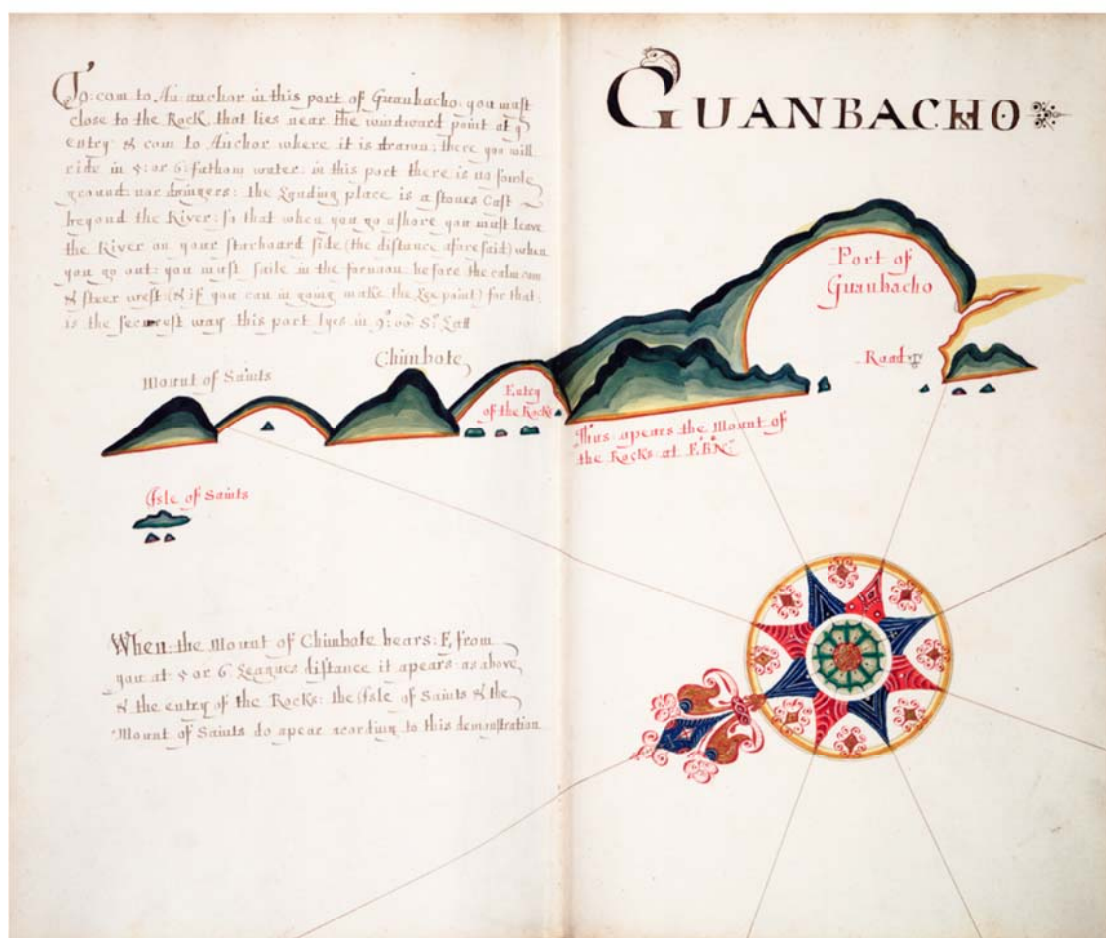 GUANBACHO
To: com to An anchor in this port of Guanbacho: you must
close to the Rock that lies near the windward point at ye
entry: & com to Anchor where it is drawn: there you will
ride in 5: or 6: fathom water: in this port there is no foule
ground: nor daingers: the Landing place is a stones Cast
beyond the River: so that when you go ashore you must leave
the River on your starboard side (the distance aforesaid) when
you go out: you must saile in the fornoon before the calm com
& steer west (& if you can in going make the Lee point) for that
is the securest way this port lyes in 9°: 00 So: Latt
Port of
Guanbacho
Road
Chinbote
Mount of Saints
Entry
of the Rocks
Thus: apears the Mount of
the Rocks at
Isle of Saints
When: the Mount of Chinbote bears: E, from
you at 5 or 6 Leagues distance it apears: as above
& the entry of the Rocks: the Isle of Saints & the
Mount of Saints do apear acording to this demonstration